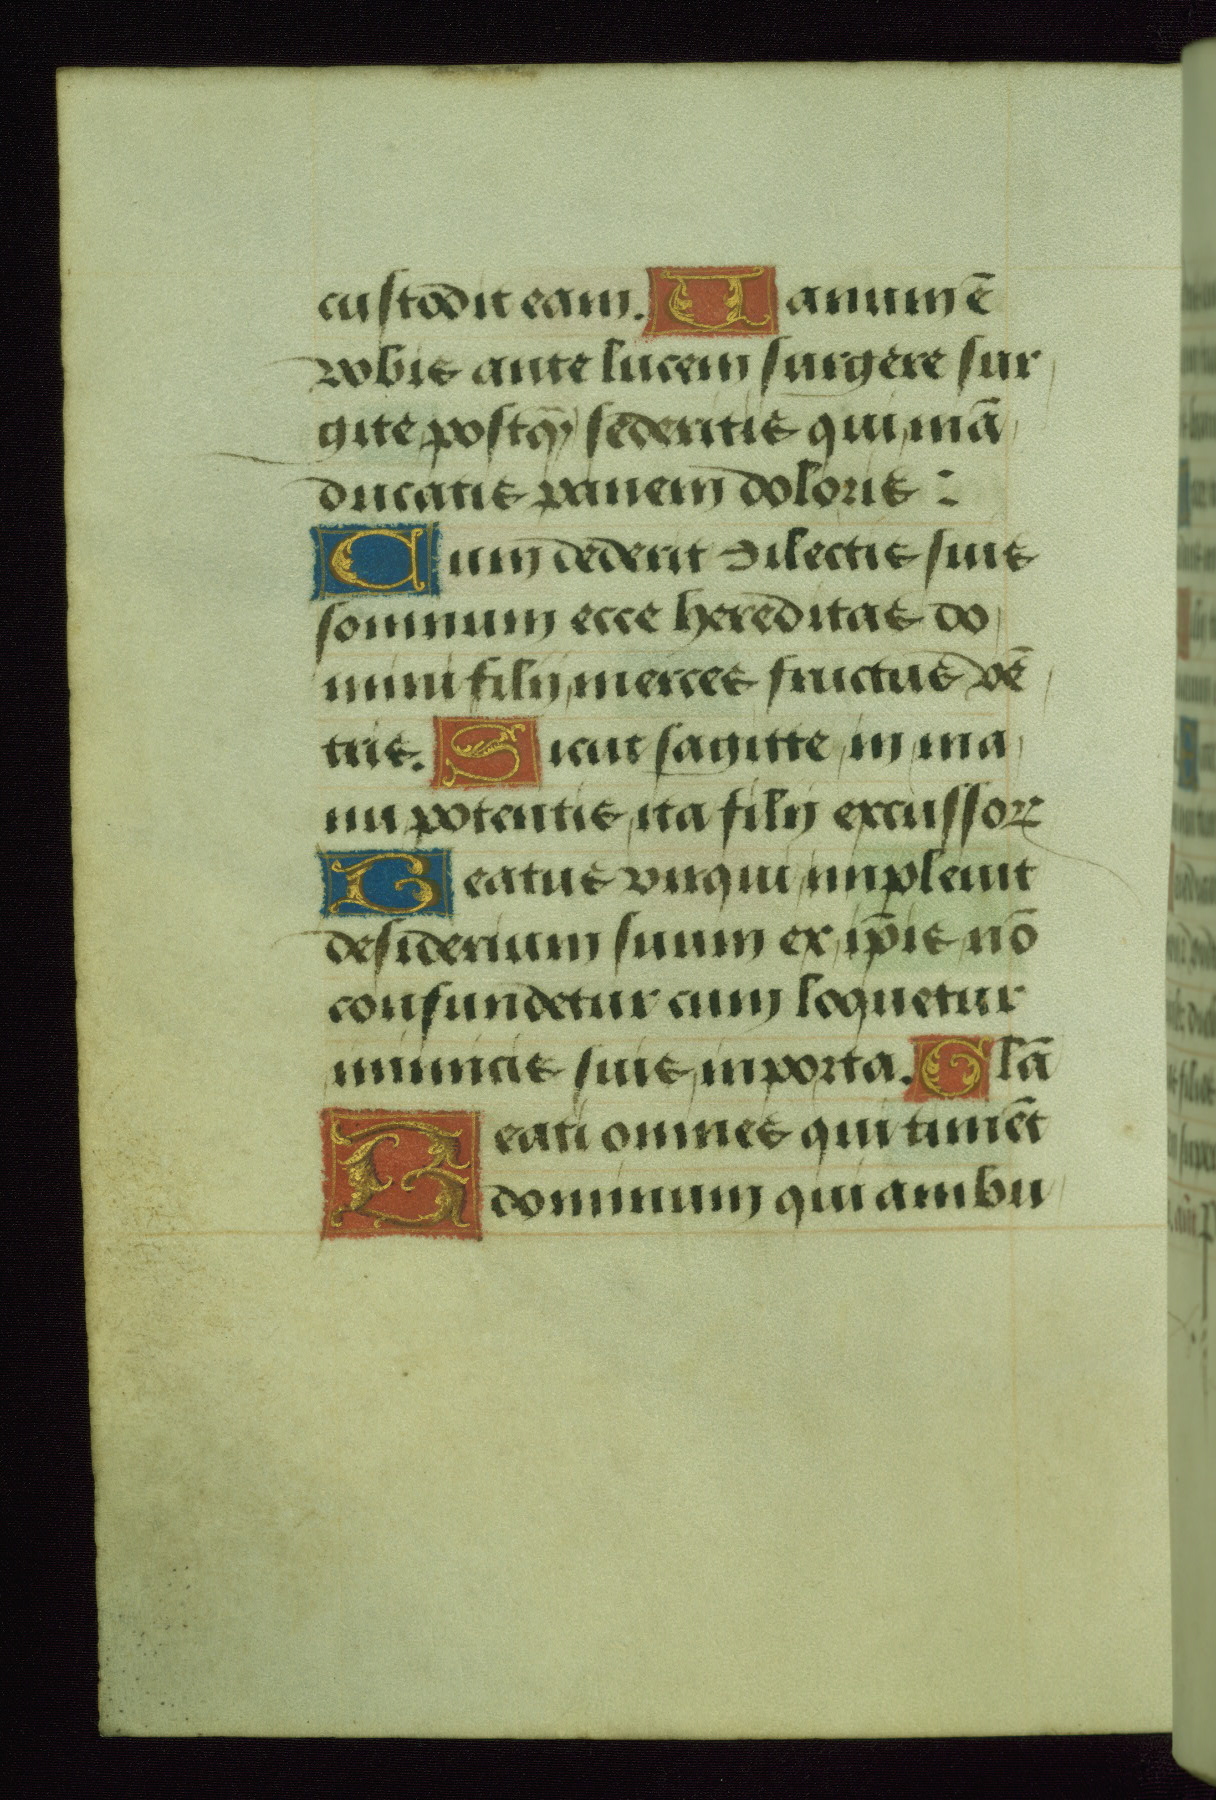 custodit eam. Uanum ē
vobis ante lucem surgere sur
gite postq̄ȝ sederitis qui mā
ducatis panem doloris :
Cum dederit dilectis suis
somnum ecce hereditas do
mini filij merces fructus vē
tris. Sicut sagitte in ma
nu potentis ita filij excussoꝝ
Beatus vir qui impleuit
desiderium suum ex ip̄is nō
confundetur cum loquetur
inimicis suis in porta. Glā
Beati omnes qui timēt
dominum qui ambu